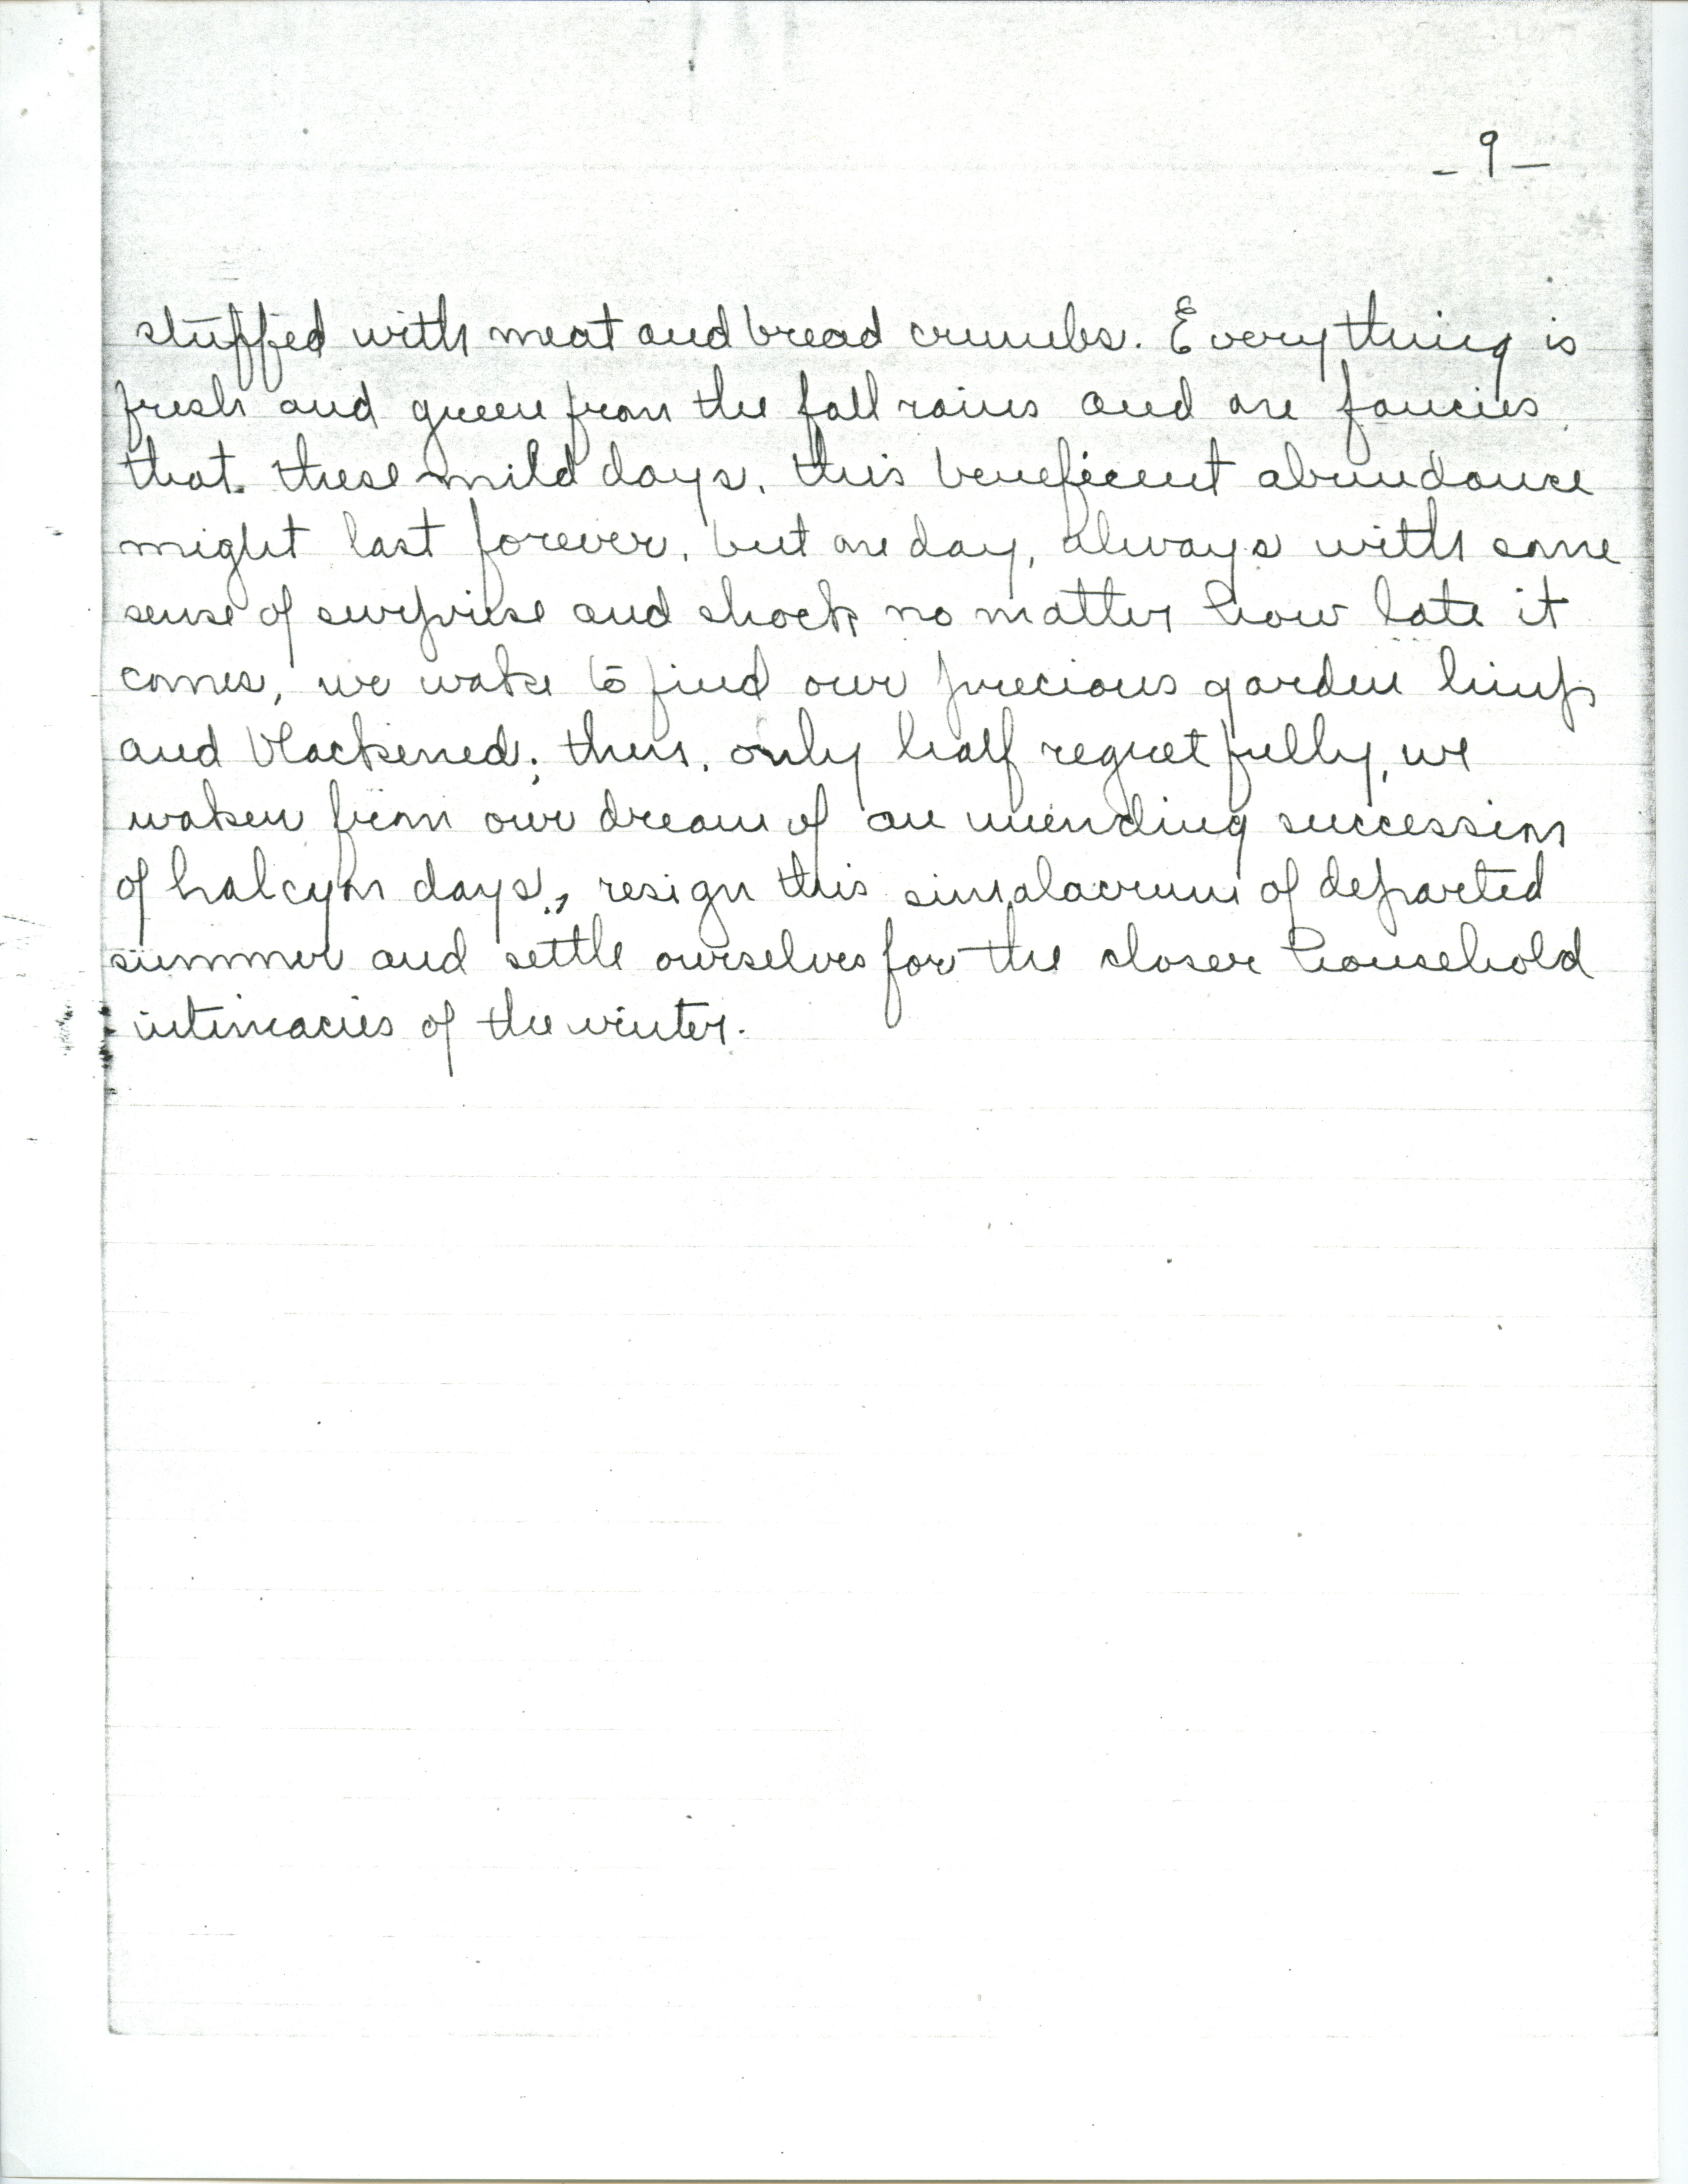 - 9 -
stuffed with meat and bread crumbs. Everything is
fresh and green from the fall rains and one fancies
that these mild days, this beneficent abundance
might last forever, but one day, always with some
sense of surprise and shock no matter how late it
comes, we wake to find our precious garden limp
and blackened; thus, only half regretfully, we
waken from our dream of an unending succession
of halcyon days, resign this simalacrum of departed
summer and settle ourselves for the closer household
intimacies of the winter.